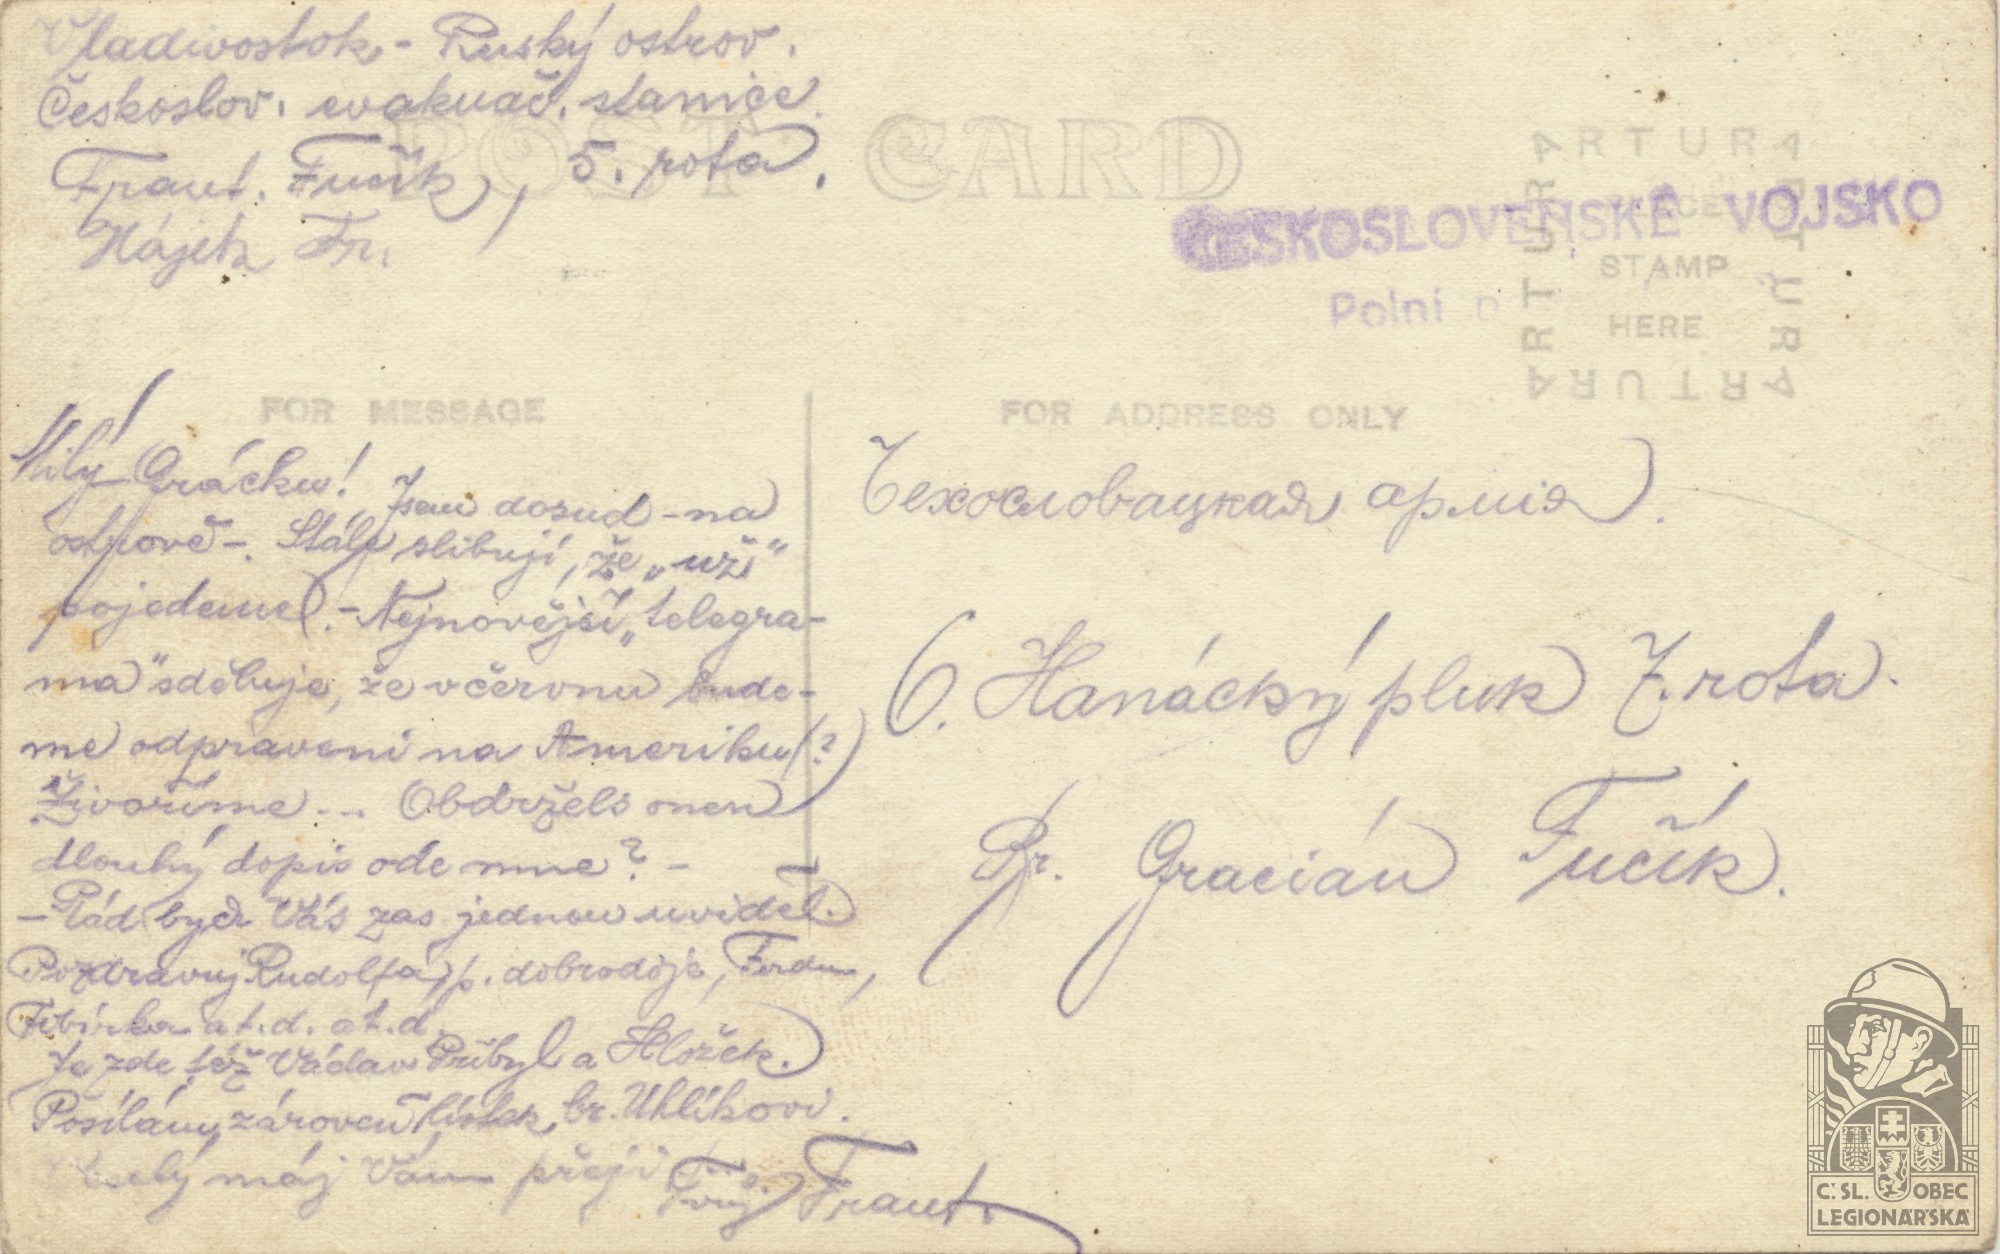 Vladivostok - Ruský ostrov.
Českoslov. evakuač. stanice.
Frant. Fučík, 5. rota.
Hájek Fr.
POST CARD
ARTURA
ARTURA
ARTURA
ARTURA
PLACE
STAMP
HERE
ČESKOSLOVENSKÉ VOJSKO
Polní
FOR MESSAGE
FOR ADDRESS ONLY
Milý Grácku! Jsem dosud - na
ostrově -. Stále slibují, že „už“
pojedeme. - Nejnovější „telegra-
ma“ sděluje, že v červnu bude-
me odpraveni na Ameriku (?)
Živoříme... Obdržels onen
dlouhý dopis ode mne? -
- Rád bych Vás zas jednou uviděl.
Pozdravuj Rudolfa, p. dobroděje, Ferdu,
Fibírka a t.d. a t.d.
Je zde též Václav Přibyl a Hložek.
Posílám zároveň lístek br. Uhlíkovi.
Veselý máj Vám přeji Tvůj Frant.
Чехословацкая армія.
6. Hanácký pluk 7. rota.
Br. Gracián Fučík.
Č. SL. OBEC
LEGIONÁŘSKÁ